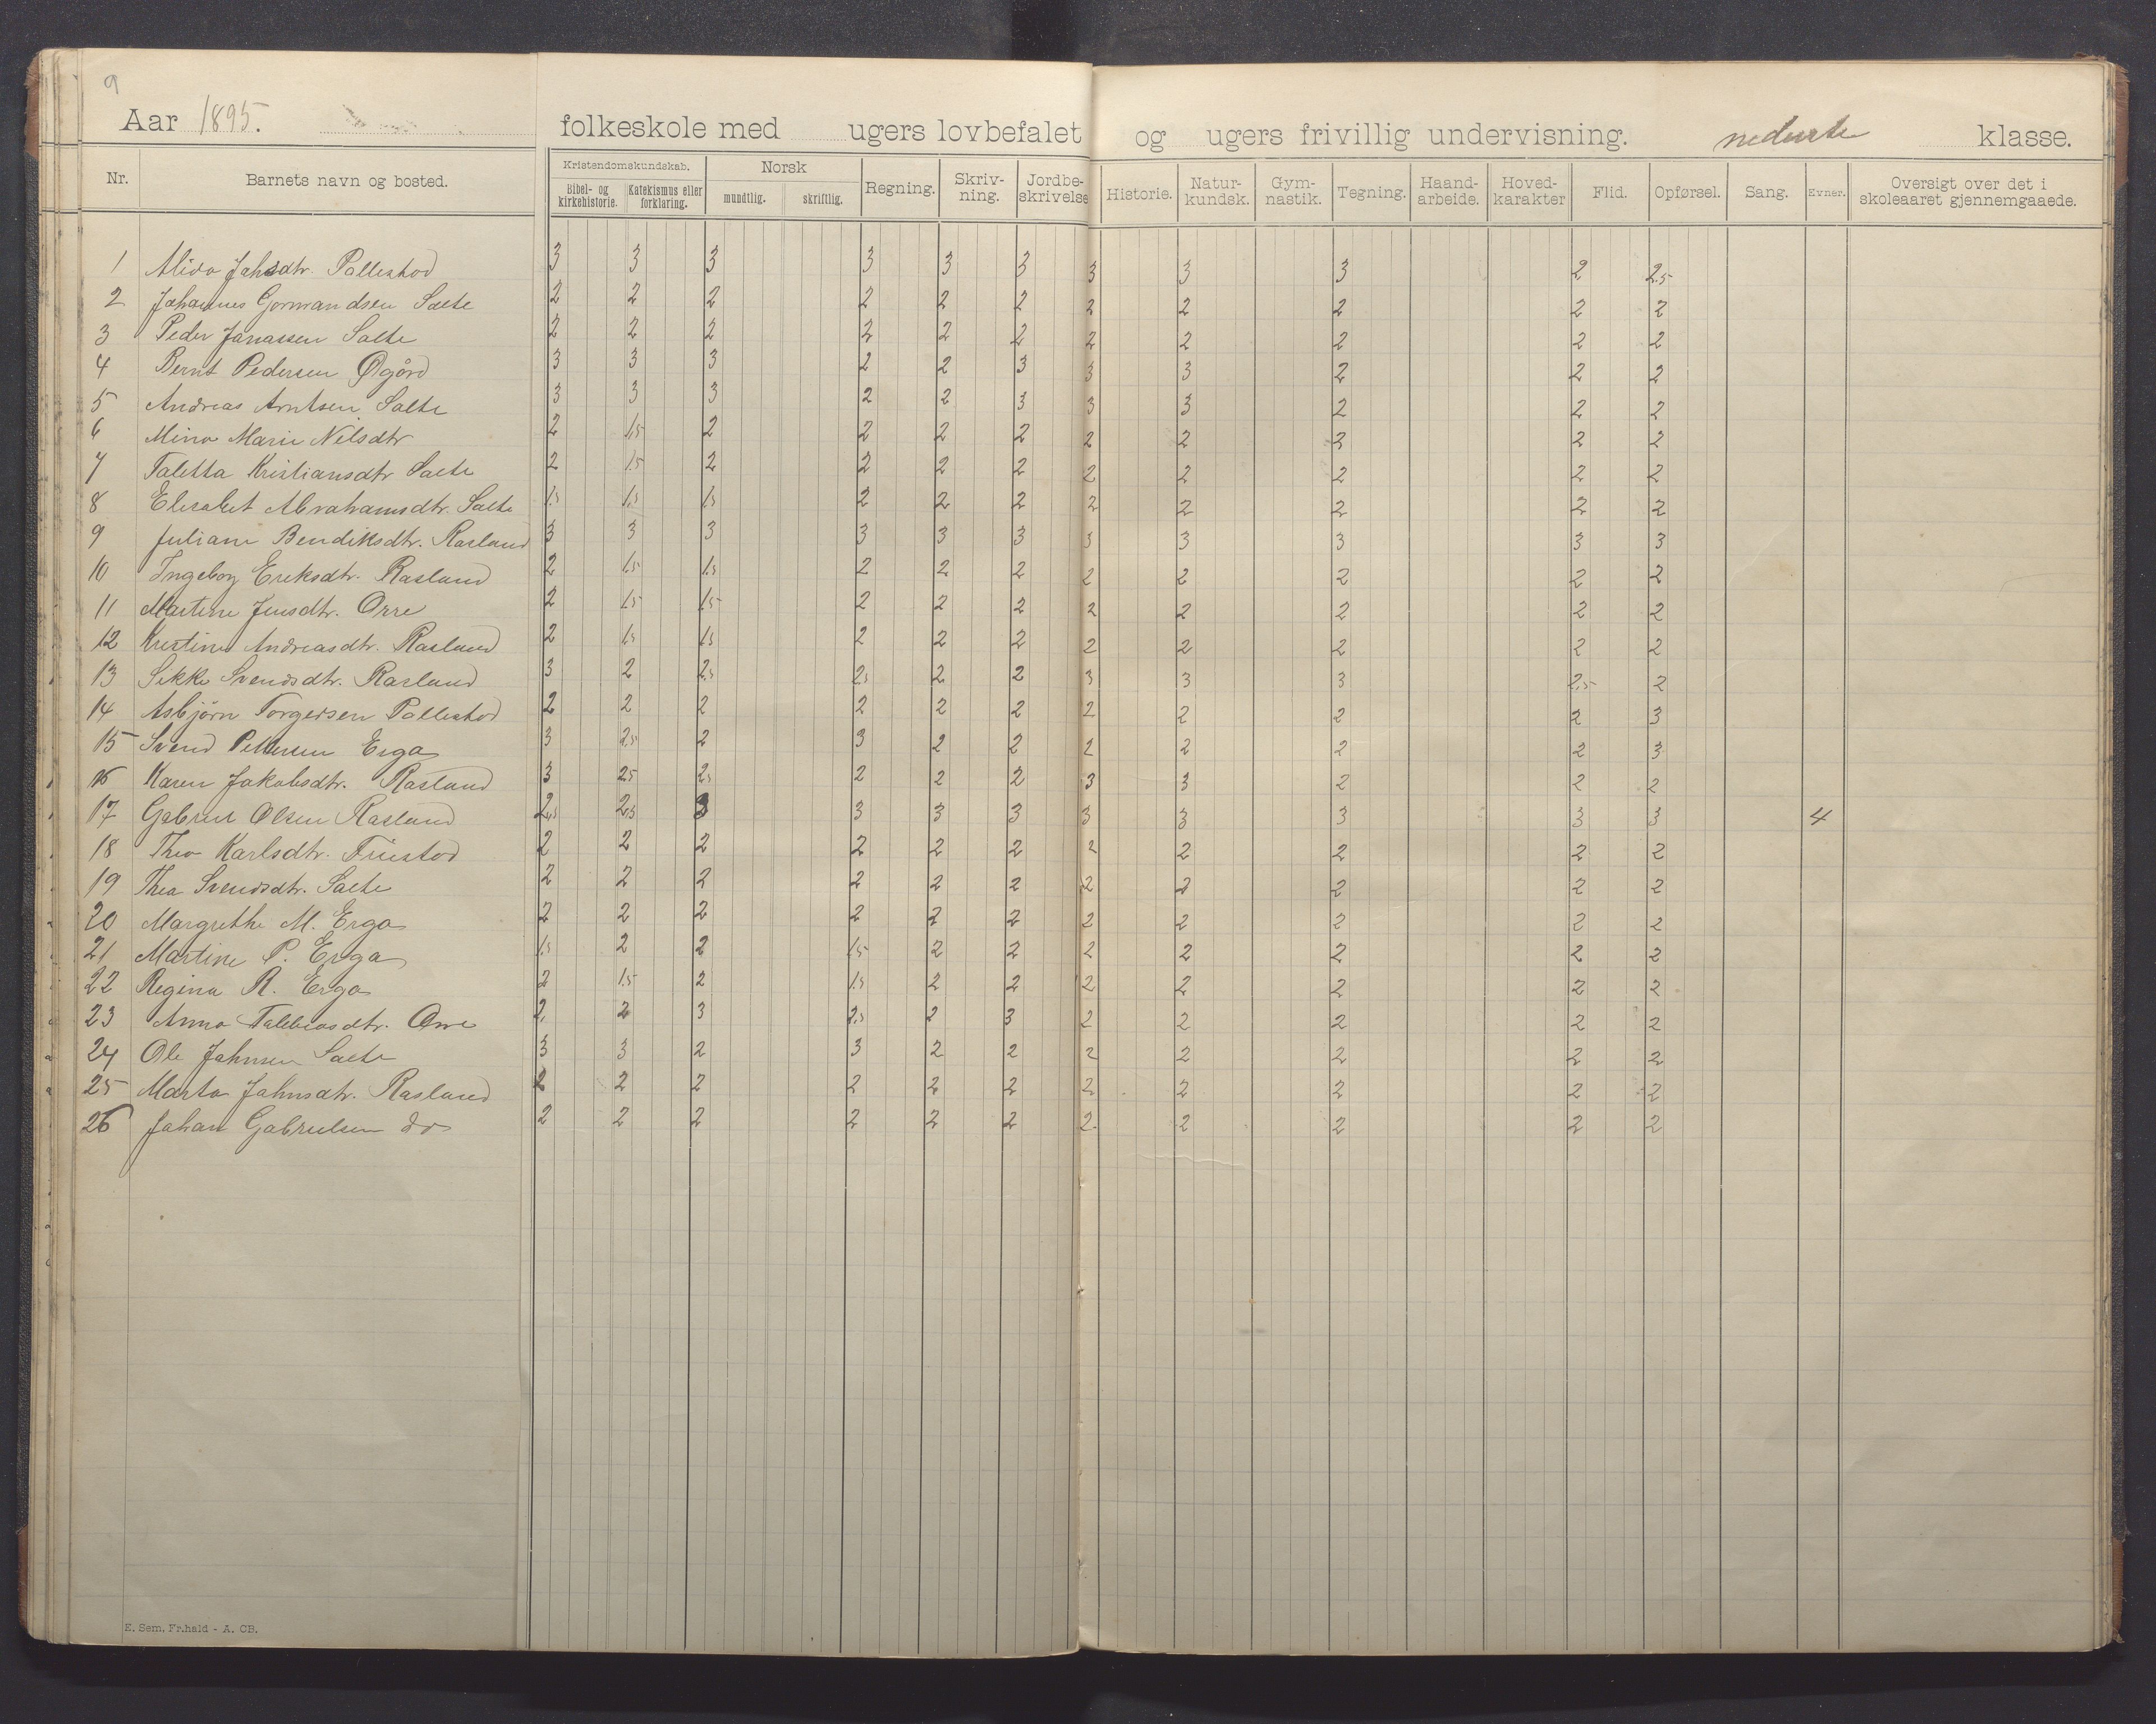 9
Aar 1895. folkeskole med ugers lovbefalet og ugers frivillig undervisning. nederste klasse.
Nr. Barnets navn og bosted. Kristendomskundskab. Bibel- og kirkehistorie. Katekismus eller forklaring. Norsk mundtlig. skriftlig. Regning. Skriv-ning. Jordbe-skrivelse Historie. Natur-kundsk. Gym-nastik. Tegning. Haand-arbeide. Hoved-karakter Flid. Opførsel. Sang. Evner. Oversigt over det i skoleaaret gjennemgaaede.
1 Alida Jahsdtr. Pollestad 3 3 3 3 3 3 3 3 3 2 2.5
2 Johannes Gormandsen Salte 2 2 2 2 2 2 2 2 2 2 2
3 Peder Janassen Salte 2 2 2 2 2 2 2 2 2 2 2
4 Bernt Pedersen Øgård 3 3 3 2 2 3 3 3 2 2 2
5 Andreas Arntsen Salte 3 3 3 2 2 3 3 3 2 2 2
6 Mina Marie Nilsdtr 2 1.5 2 2 2 2 2 2 2 2 2
7 Taletta Kristiansdtr Salte 2 1.5 2 2 2 2 2 2 2 2 2
8 Elisabet Abrahamsdtr. Salte 1.5 1.5 1.5 2 2 2 2 2 2 2 2
9 Juliane Bendiksdtr. Rasland 3 3 3 3 3 3 3 3 3 3 3
10 Ingeborg Eriksdtr. Rasland 2 1.5 1.5 2 2 2 2 2 2 2 2
11 Martine Jensdtr. Orre 2 1.5 1.5 2 2 2 2 2 2 2 2
12 Kristine Andreasdtr. Rasland 2 1.5 1.5 2 2 2 2 2 2 2 2
13 Sikke Svendsdtr. Rasland 3 2 2.5 2.5 2 2 3 3 3 2.5 2
14 Asbjörn Torgersen Pollestad 2 2 2 2 2 2 2 2 2 2 3
15 Svend Petersen Erga 3 2.5 2 3 2 2 2 2 2 2 3
16 Karen Jakobsdtr. Rasland 3 2.5 2.5 2 2 2 3 3 2 2 2
17 Gabriel Olsen Rasland 2.5 2.5 3 3 3 3 3 3 3 3 3 4
18 Thea Karlsdtr. Friestad 2 2 2 2 2 2 2 2 2 2 2
19 Thea Svendsdtr. Salte 2 2 2 2 2 2 2 2 2 2 2
20 Margrethe M. Erga 2 2 2 2 2 2 2 2 2 2 2
21 Martine P. Erga 1.5 2 2 1.5 2 2 2 2 2 2 2
22 Regina R. Erga 2 1.5 2 1.5 2 2 2 2 2 2 2
23 Anna Tolleivsdtr. Orre 2. 2 3 2.5 2 3 2 2 2 2 2
24 Ole Jahnsen Salte 3 3 2 3 2 2 2 2 2 2 2
25 Marta Jahnsdtr. Rasland 2 2 2 2 2 2 2 2 2 2 2
26 Johan Gabrielsen do 2 2 2 2 2 2 2. 2 2 2 2
E. Sem, Fr.hald - A. CB.